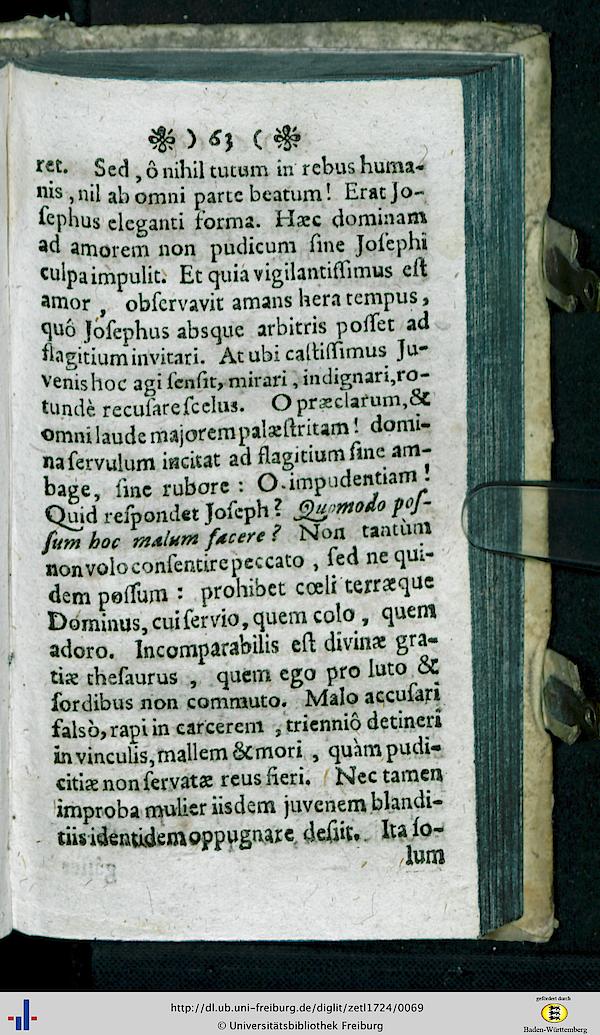 ) 63 (
ret. Sed , ô nihil tutum in rebus huma-
nis , nil ab omni parte beatum! Erat Jo-
ſephus eleganti forma. Hæc dominam
ad amorem non pudicum ſine Joſephi
culpa impulit. Et quia vigilantiſſimus eſt
amor , obſervavit amans hera tempus,
quô Joſephus absque arbitris poſſet ad
flagitium invitari. At ubi caſtiſſimus Ju-
venis hoc agi ſenſit, mirari , indignari, ro-
tundè recuſare ſcelus. O præclarum, &
omni laude majorem palæſtritam! domi-
na ſervulum incitat ad flagitium ſine am-
bage, ſine rubore : O impudentiam!
Quid reſpondet Joſeph? Quomodo poſ-
ſum hoc malum facere? Non tantùm
non volo conſentire peccato , ſed ne qui-
dem poſſum : prohibet cœli terræque
Dominus, cui ſervio, quem colo , quem
adoro. Incomparabilis eſt divinæ gra-
tiæ theſaurus , quem ego pro luto &
ſordibus non commuto. Malo accuſari
falsò, rapi in carcerem , trienniô detineri
in vinculis, mallem & mori , quàm pudi-
citiæ non ſervatæ reus fieri. Nec tamen
improba mulier iisdem juvenem blandi-
tiis identidem oppugnare deſiit. Ita ſo-
lum
http://dl.ub.uni-freiburg.de/diglit/zetl1724/0069
© Universitätsbibliothek Freiburg
gefördert durch
Baden-Württemberg